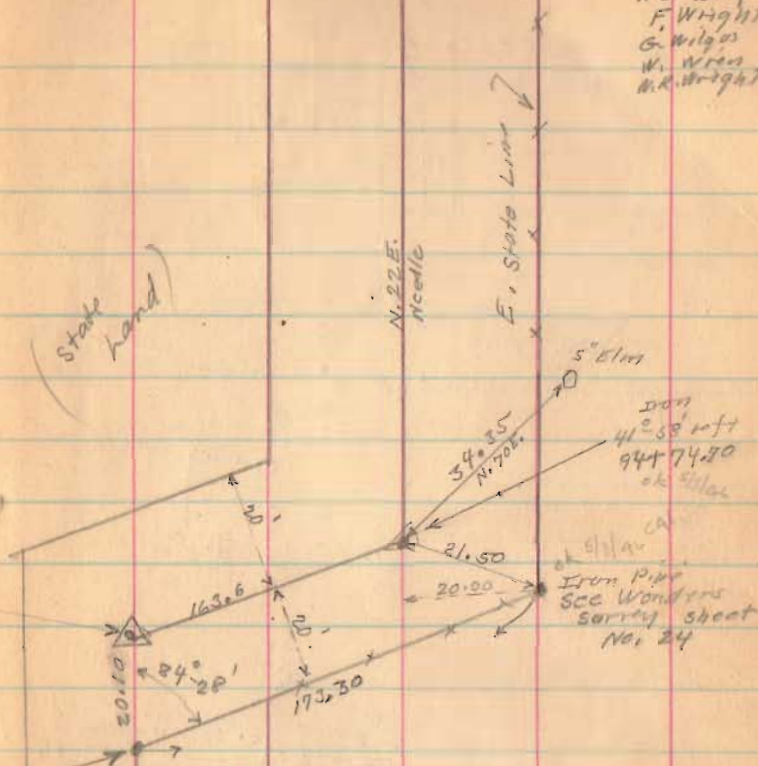 F. Wright
G. Wilgos
W. Wren
W.R. Wright
E. State Line
N. 22 E.
Needle
(State
Land)
5" Elm
34.35
N. 70E.
Iron
41°-58' Left
94+74.90
ok
20'
21.50
ok
20.00
Iron Pipe
See Wonders
Survey sheet
No. 24
163.6
20'
84°
-28'
20.10
173.30